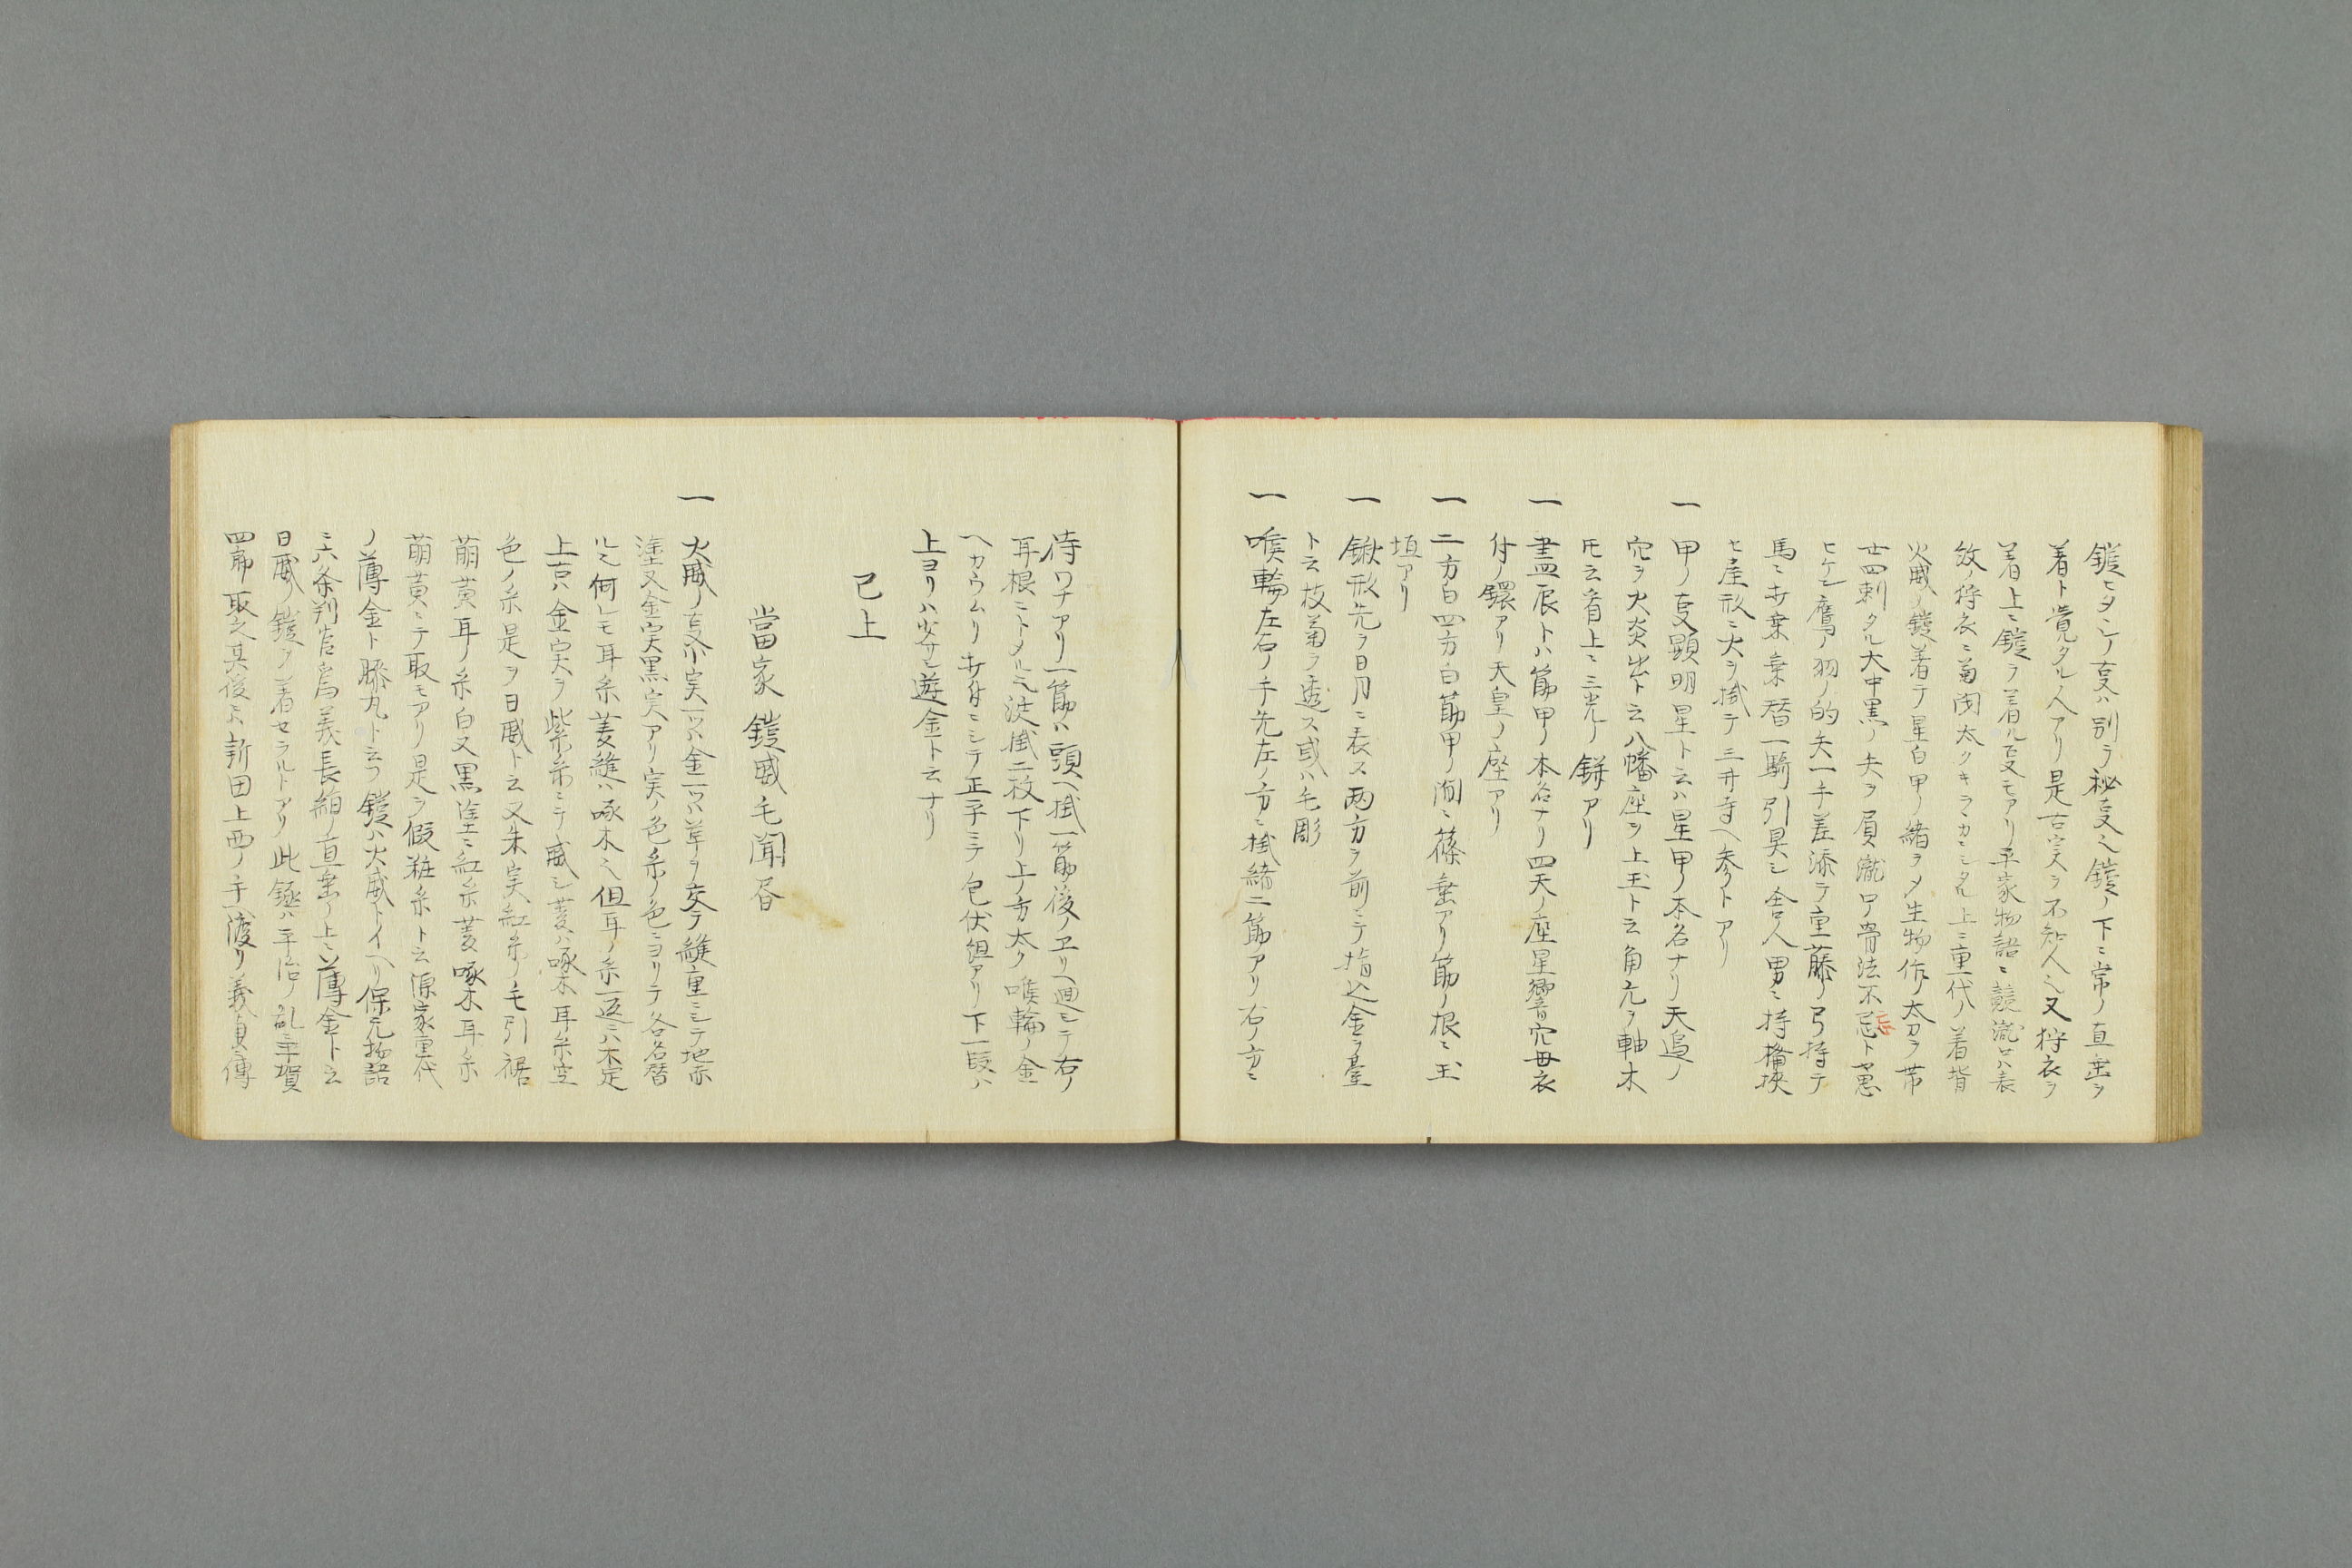 鎧ヒタヽレノ亊ハ別ヲ秘亊也鎧ノ下ニ常ノ直垂ヲ
着ト覚タル人アリ是古実ヲ不知人也又狩衣ヲ
着上ニ鎧ヲ着ル亊モアリ平家物語ニ競瀧口ハ表
紋ノ狩衣ニ菊閉太クキラカニシタル上ニ重代ノ着背
火威ノ鎧着テ星白甲ノ緒ヲメ生物作ノ太刀ヲ帯
廿四刺タル大中黒ノ矢ヲ屓瀧口骨法不忘ト
ヒケン鷹ノ羽ノ的矢一手差添テ重藤ノ弓持テ
馬ニ打乗乗替一騎引具シ舎人男ニ持楯挾
セ屋形ニ火ヲ掛テ三井寺ヘ参トアリ
一 甲ノ亊顕明星ト云ハ星甲ノ本名ナリ天邉ノ
穴ヲ火炎出ト云八幡座ヲ上玉ト云角元ヲ軸木
トモ云眉上ニ三光ノ鉼アリ
一 盡辰トハ筋甲ノ本名ナリ四天ノ座星響穴母衣
付ノ鐶アリ天皇ノ座アリ
一 二方白四方白筋甲ノ間ニ篠垂アリ筋ノ根ニ玉
垣アリ
一 鍬形先ヲ日月ニ表ス両方ヲ前ニテ指込金ヲ臺
ト云枝菊ヲ透ス或ハ毛彫
一 喉輪左右ノ手先左ノ方ニ掛緒二筋アリ右ノ方ニ
待ワナアリ一筋ハ頭ヘ掛一筋後ノヱリヘ廻シテ右ノ
耳根ニトメル也泼掛二枚下リ上ノ方太ク喉輪ノ金
ヘカウムリ打付ニシテ正平ニテ包伏組アリ下一段ハ
上ヨリハ少サシ遊金ト云ナリ
已上
當家鎧威毛聞昏
一 火威ノ亊小実一ツハ金一ツハ革ヲ交テ縫重ニシテ地赤
塗又金実黒実アリ実ノ色糸ノ色ニヨリテ各名替
ル也何レモ耳糸菱縫ハ啄木也但耳ノ糸一返ハ不定
上古ハ金実ヲ紫糸ニテ威シ菱ハ啄木耳糸空
色ノ糸是ヲ日威ト云又朱実紅糸ノ毛引裾
萠黄耳ノ糸白又黒塗ニ紅糸菱啄木耳ノ糸
萠黄ニテ取モアリ是ヲ假粧糸ト云源家重代
ノ薄金ト膝丸ト云フ鎧ハ火威トイヘリ保元物語
ニ六条判官為義長絹ノ直垂ノ上ニ薄金ト云
日威ノ鎧ヲ着セラルトアリ此鎧ハ平治ノ乱ニ平賀
四郎取之其後ハ新田上西ノ手ヘ渡リ義貞ニ傳